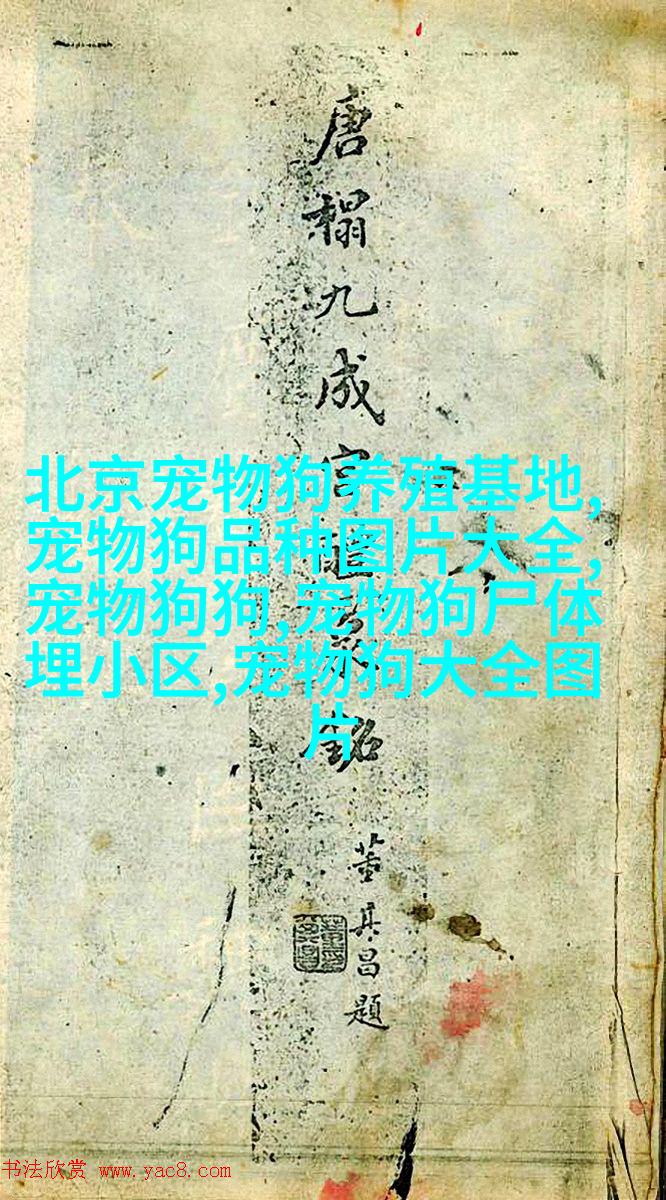 唐榻九成宮醴泉銘
董其昌題
北京宠物狗养殖基地,
宠物狗品种图片大全,
宠物狗狗,宠物狗尸体
埋小区,宠物狗大全图
片
书法欣赏 www.yac8.com